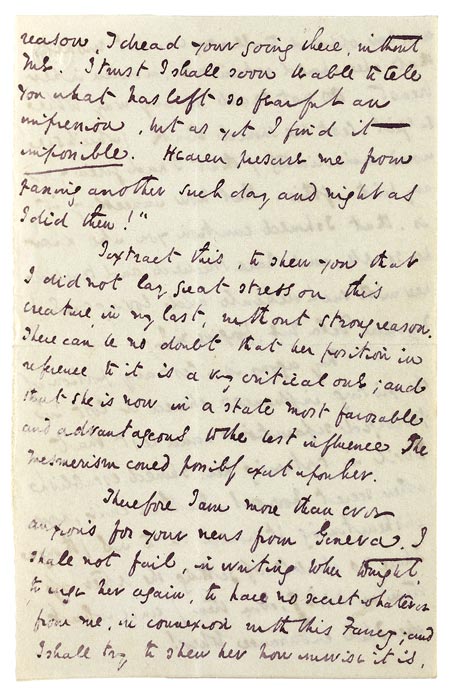 reason, I dread your going there, without
me. I trust I shall soon be able to tell
you what has left so fearful an
impression, but as yet I find it
impossible. Heaven preserve me from
passing another such day and night as
I did then!"
I extract this, to shew you that
I did not lay great stress on this
creature, in my last, without strong reason.
There can be no doubt that her position in
reference to it is a very critical one; and
that she is now in a state most favorable
and advantageous to the best influence The
Mesmerism could possibly exert upon her.
Therefore I am more than ever
anxious for your news from Geneva. I
shall not fail, in writing to her tonight,
to urge her again, to have no secret whatever
from me, in connexion with this Fancy; and
I shall try to shew her how unwise it is,